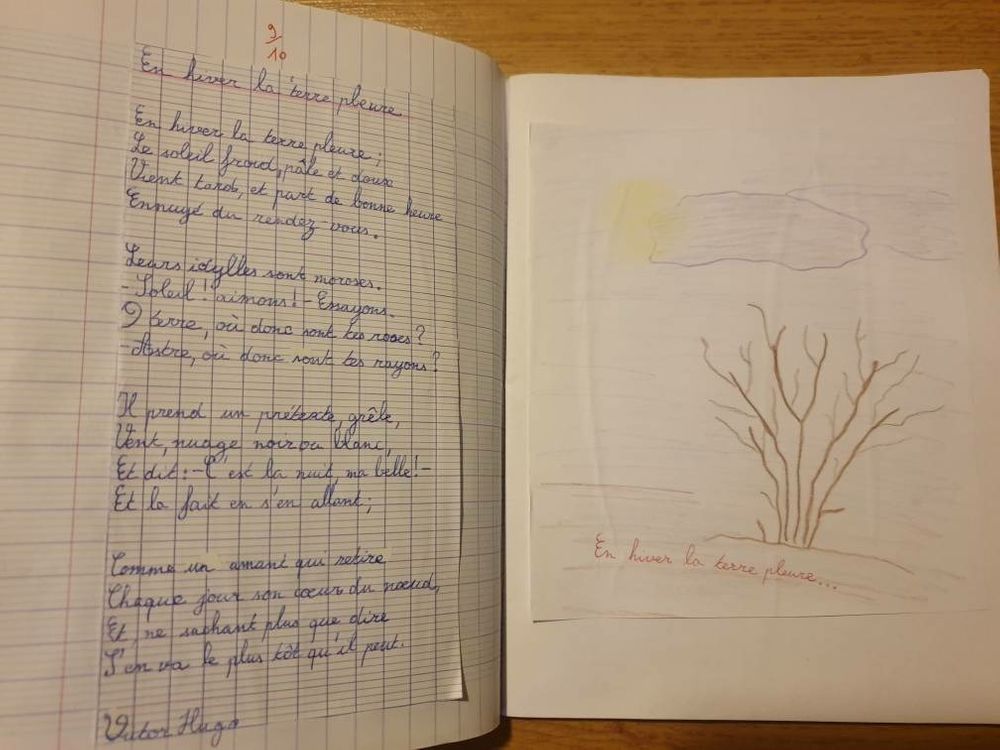 9/10
En hiver la terre pleure
En hiver la terre pleure ;
Le soleil froid, pâle et doux
Vient tard, et part de bonne heure
Ennuyé du rendez-vous.
Leurs idylles sont moroses.
- Soleil ! aimons ! - Essayons.
O terre, où donc sont tes roses ?
- Astre, où donc sont tes rayons ?
Il prend un prétexte, grêle,
Vent, nuage noir ou blanc,
Et dit : - C'est la nuit, ma belle ! -
Et la fait en s'en allant ;
Comme un amant qui retire
Chaque jour son cœur du nœud,
Et ne sachant plus que dire
S'en va le plus tôt qu'il peut.
Victor Hugo
En hiver la terre pleure...